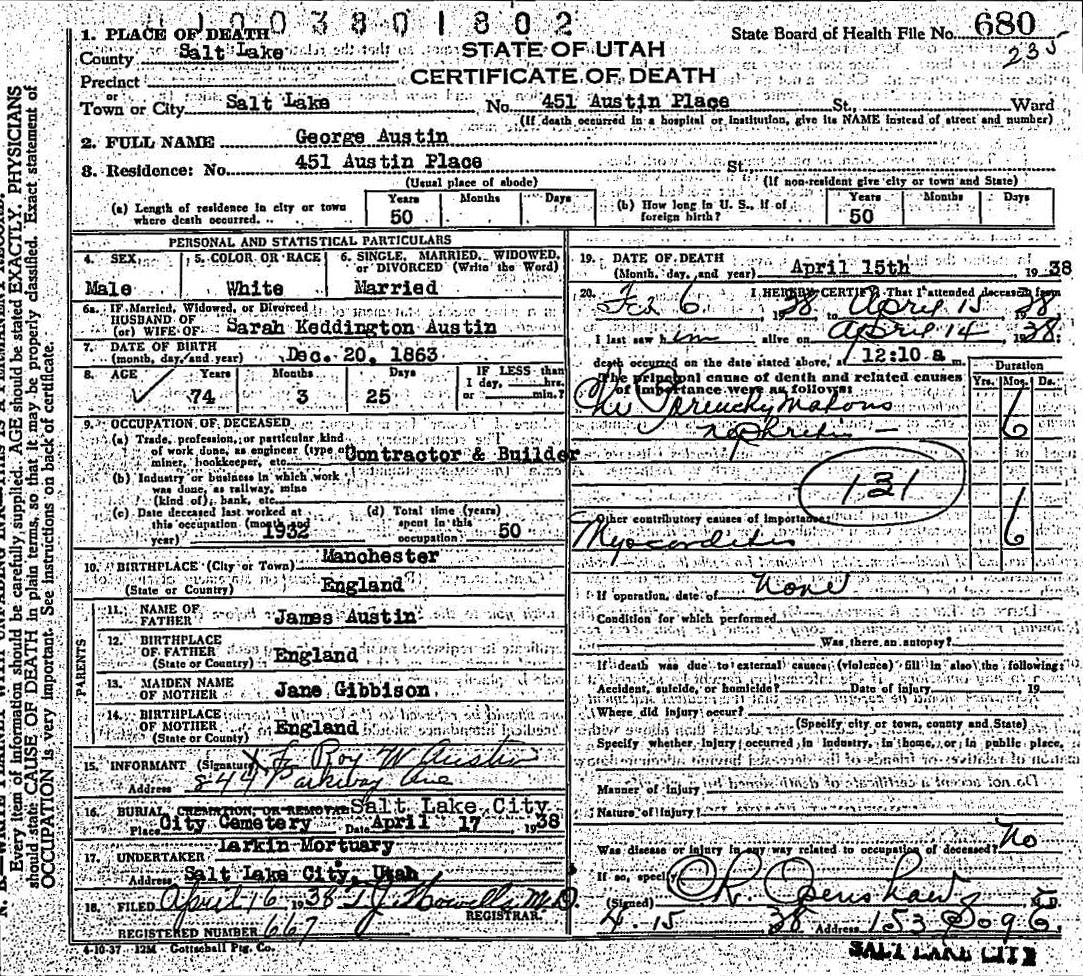 1003801802
1. PLACE OF DEATH
State Board of Health File No. 680
235
County Salt Lake
STATE OF UTAH
Precinct
CERTIFICATE OF DEATH
or
Town or City Salt Lake No. 451 Austin Place St., Ward
(If death occurred in a hospital or institution, give its NAME instead of street and number)
2. FULL NAME George Austin
3. Residence: No. 451 Austin Place St.
(Usual place of abode) (If non-resident give city or town and State)
(a) Length of residence in city or town where death occurred. Years 50 Months Days
(b) How long in U. S., if of foreign birth? Years 50 Months Days
PERSONAL AND STATISTICAL PARTICULARS
4. SEX 5. COLOR OR RACE 6. SINGLE, MARRIED, WIDOWED, or DIVORCED (Write the Word)
Male White Married
6a. IF Married, Widowed, or Divorced
HUSBAND OF
(or) WIFE OF Sarah Keddington Austin
7. DATE OF BIRTH
(month, day, and year) Dec. 20, 1863
8. AGE Years Months Days IF LESS than
1 day, hrs.
or min.?
74 3 25
9. OCCUPATION OF DECEASED
(a) Trade, profession, or particular kind
of work done, as engineer (type of
miner, bookkeeper, etc. Contractor & Builder
(b) Industry or business in which work
was done, as railway, mine
(kind of), bank, etc.
(c) Date deceased last worked at
this occupation (month and
year) 1932
(d) Total time (years)
spent in this
occupation 50
10. BIRTHPLACE (City or Town) Manchester
(State or Country) England
PARENTS
11. NAME OF
FATHER James Austin
12. BIRTHPLACE
OF FATHER
(State or Country) England
13. MAIDEN NAME
OF MOTHER Jane Gibbison
14. BIRTHPLACE
OF MOTHER
(State or Country) England
15. INFORMANT (Signature) X Roy W Austin
Address 844 Parkway Ave
16. BURIAL, CREMATION, OR REMOVAL Salt Lake City
Place City Cemetery Date April 17 1938
17. UNDERTAKER Larkin Mortuary
Address Salt Lake City, Utah
18. FILED April 16 1938 T J Howells M.D.
REGISTRAR.
REGISTERED NUMBER 667
4-10-37 12M Gottschall Ptg. Co.
19. DATE OF DEATH
(Month, day, and year) April 15th 1938
20. I HEREBY CERTIFY That I attended deceased from
Feb 6 1938 to April 15 1938
I last saw him alive on April 14 1938;
death occurred on the date stated above, at 12:10 a m.
The principal cause of death and related causes
of importance were as follows:
Duration
Yrs. Mos. Ds.
Parenchymatous
nephritis - 6
131
Other contributory causes of importance:
Myocarditis 6
If operation, date of None
Condition for which performed
Was there an autopsy?
If death was due to external causes (violence) fill in also the following:
Accident, suicide, or homicide? Date of injury 19
Where did injury occur?
(Specify city or town, county and State)
Specify whether injury occurred in industry, in home, or in public place.
Manner of injury
Nature of injury
Was disease or injury in any way related to occupation of deceased? No
If so, specify
(Signed) C R Openshaw M.D.
4.15 38 Address 153 So 9 E.
SALT LAKE CITY
Every item of information should be carefully supplied. AGE should be stated EXACTLY. PHYSICIANS
should state CAUSE OF DEATH in plain terms, so that it may be properly classified. Exact statement of
OCCUPATION is very important. See instructions on back of certificate.